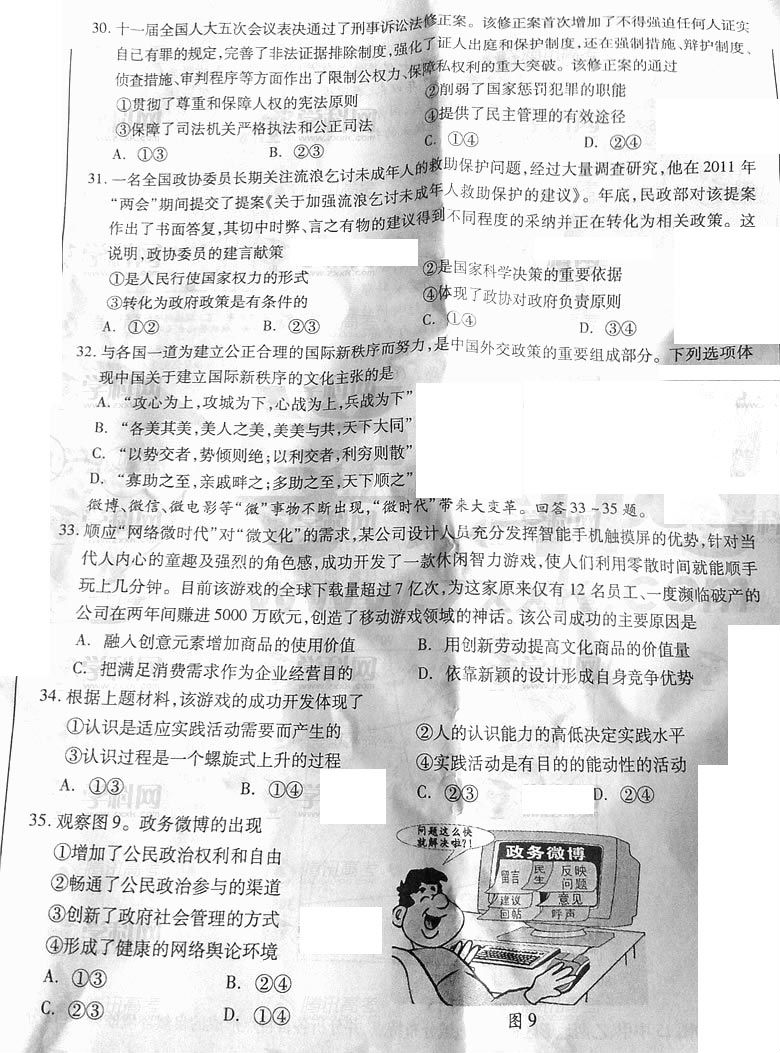 30. 十一届全国人大五次会议表决通过了刑事诉讼法修正案。该修正案首次增加了不得强迫任何人证实
自己有罪的规定,完善了非法证据排除制度,强化了证人出庭和保护制度,还在强制措施、辩护制度、
侦查措施、审判程序等方面作出了限制公权力、保障私权利的重大突破。该修正案的通过
①贯彻了尊重和保障人权的宪法原则 ②削弱了国家惩罚犯罪的职能
③保障了司法机关严格执法和公正司法 ④提供了民主管理的有效途径
A. ①③ B. ②③ C. ①④ D. ②④
31. 一名全国政协委员长期关注流浪乞讨未成年人的救助保护问题,经过大量调查研究,他在2011年
“两会”期间提交了提案《关于加强流浪乞讨未成年人救助保护的建议》。年底,民政部对该提案
作出了书面答复,其切中时弊、言之有物的建议得到不同程度的采纳并正在转化为相关政策。这
说明,政协委员的建言献策
①是人民行使国家权力的形式 ②是国家科学决策的重要依据
③转化为政府政策是有条件的 ④体现了政协对政府负责原则
A. ①② B. ②③ C. ①④ D. ③④
32. 与各国一道为建立公正合理的国际新秩序而努力,是中国外交政策的重要组成部分。下列选项体
现中国关于建立国际新秩序的文化主张的是
A. “攻心为上,攻城为下,心战为上,兵战为下”
B. “各美其美,美人之美,美美与共,天下大同”
C. “以势交者,势倾则绝;以利交者,利穷则散”
D. “寡助之至,亲戚畔之;多助之至,天下顺之”
微博、微信、微电影等“微”事物不断出现,“微时代”带来大变革。回答33~35题。
33. 顺应“网络微时代”对“微文化”的需求,某公司设计人员充分发挥智能手机触摸屏的优势,针对当
代人内心的童趣及强烈的角色感,成功开发了一款休闲智力游戏,使人们利用零散时间就能顺手
玩上几分钟。目前该游戏的全球下载量超过7亿次,为这家原来仅有12名员工、一度濒临破产的
公司在两年间赚进5000万欧元,创造了移动游戏领域的神话。该公司成功的主要原因是
A. 融入创意元素增加商品的使用价值 B. 用创新劳动提高文化商品的价值量
C. 把满足消费需求作为企业经营目的 D. 依靠新颖的设计形成自身竞争优势
34. 根据上题材料,该游戏的成功开发体现了
①认识是适应实践活动需要而产生的 ②人的认识能力的高低决定实践水平
③认识过程是一个螺旋式上升的过程 ④实践活动是有目的的能动性的活动
A. ①③ B. ①④ C. ②③ D. ②④
35. 观察图9。政务微博的出现
①增加了公民政治权利和自由
②畅通了公民政治参与的渠道
③创新了政府社会管理的方式
④形成了健康的网络舆论环境
A. ①③ B. ②④
C. ②③ D. ①④
问题这么快
就解决啦?!
政务微博
留言 民生 反映问题
建议 意见
回帖 呼声
图9